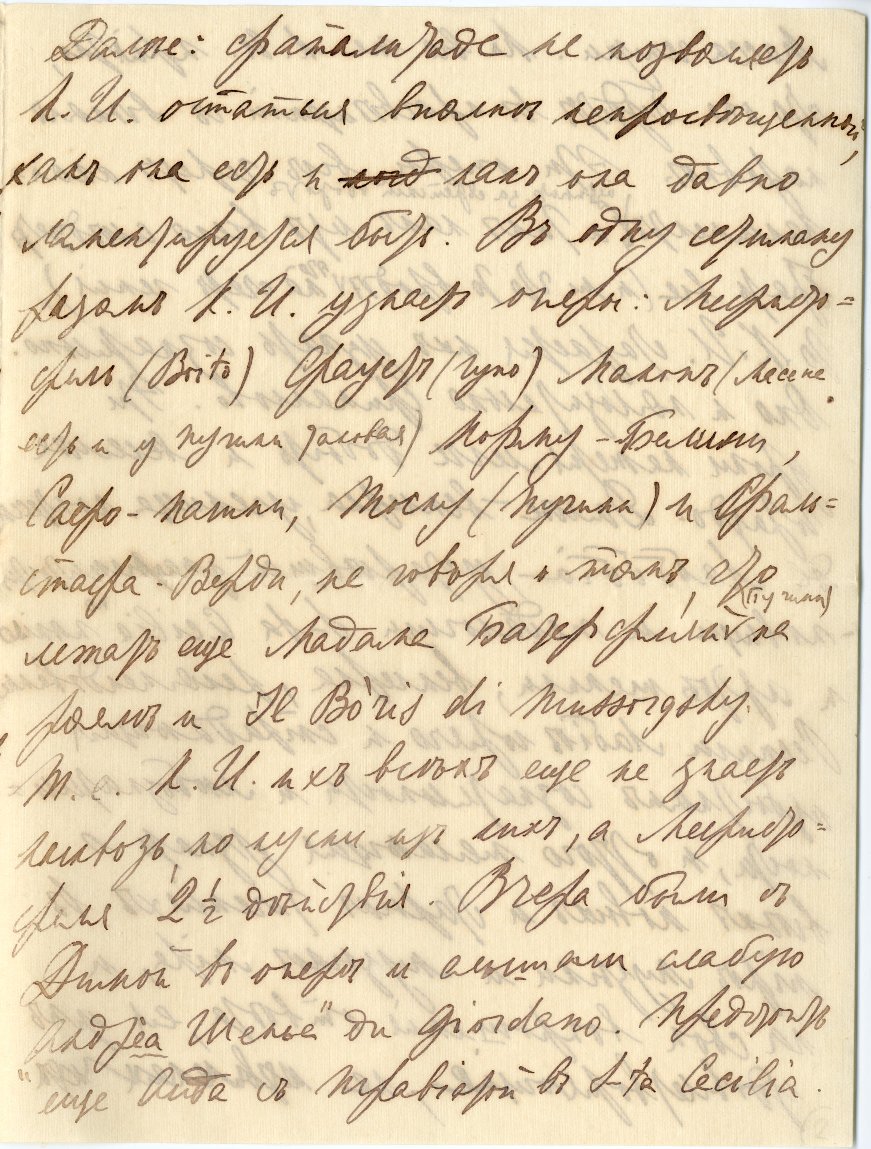 Далѣе: фаталитаде не позволяетъ
К. И. остаться вполнѣ непросвѣщенной,
какъ она есть и какъ она давно
ламентируется быть. Въ одну сетиману
разомъ К. И. узнаетъ оперы: Мефисто=
филь (Boito) Фаустъ (Гуно) Манонъ (Массне
есть и у Пучини таковая) Норму - Беллини,
Сафо - Пачини, Тоску (Пучини) и Фаль=
стафа - Верди, не говоря о томъ, что
(Пучини)
лежатъ еще Мадама Батерфляй на
роялѣ и Il Bòris di Mussorgsky.
Т. е. К. И. ихъ всѣхъ еще не знаетъ
насквозь, но куски изъ нихъ, а Мефисто=
филя 2 ½ дѣйствія. Вчера были съ
Димой въ оперѣ и слышали слабую
"Андреа Шенье" di Giordano. Предстоитъ
еще Аида съ Травіатой въ S-ta Cecilia.